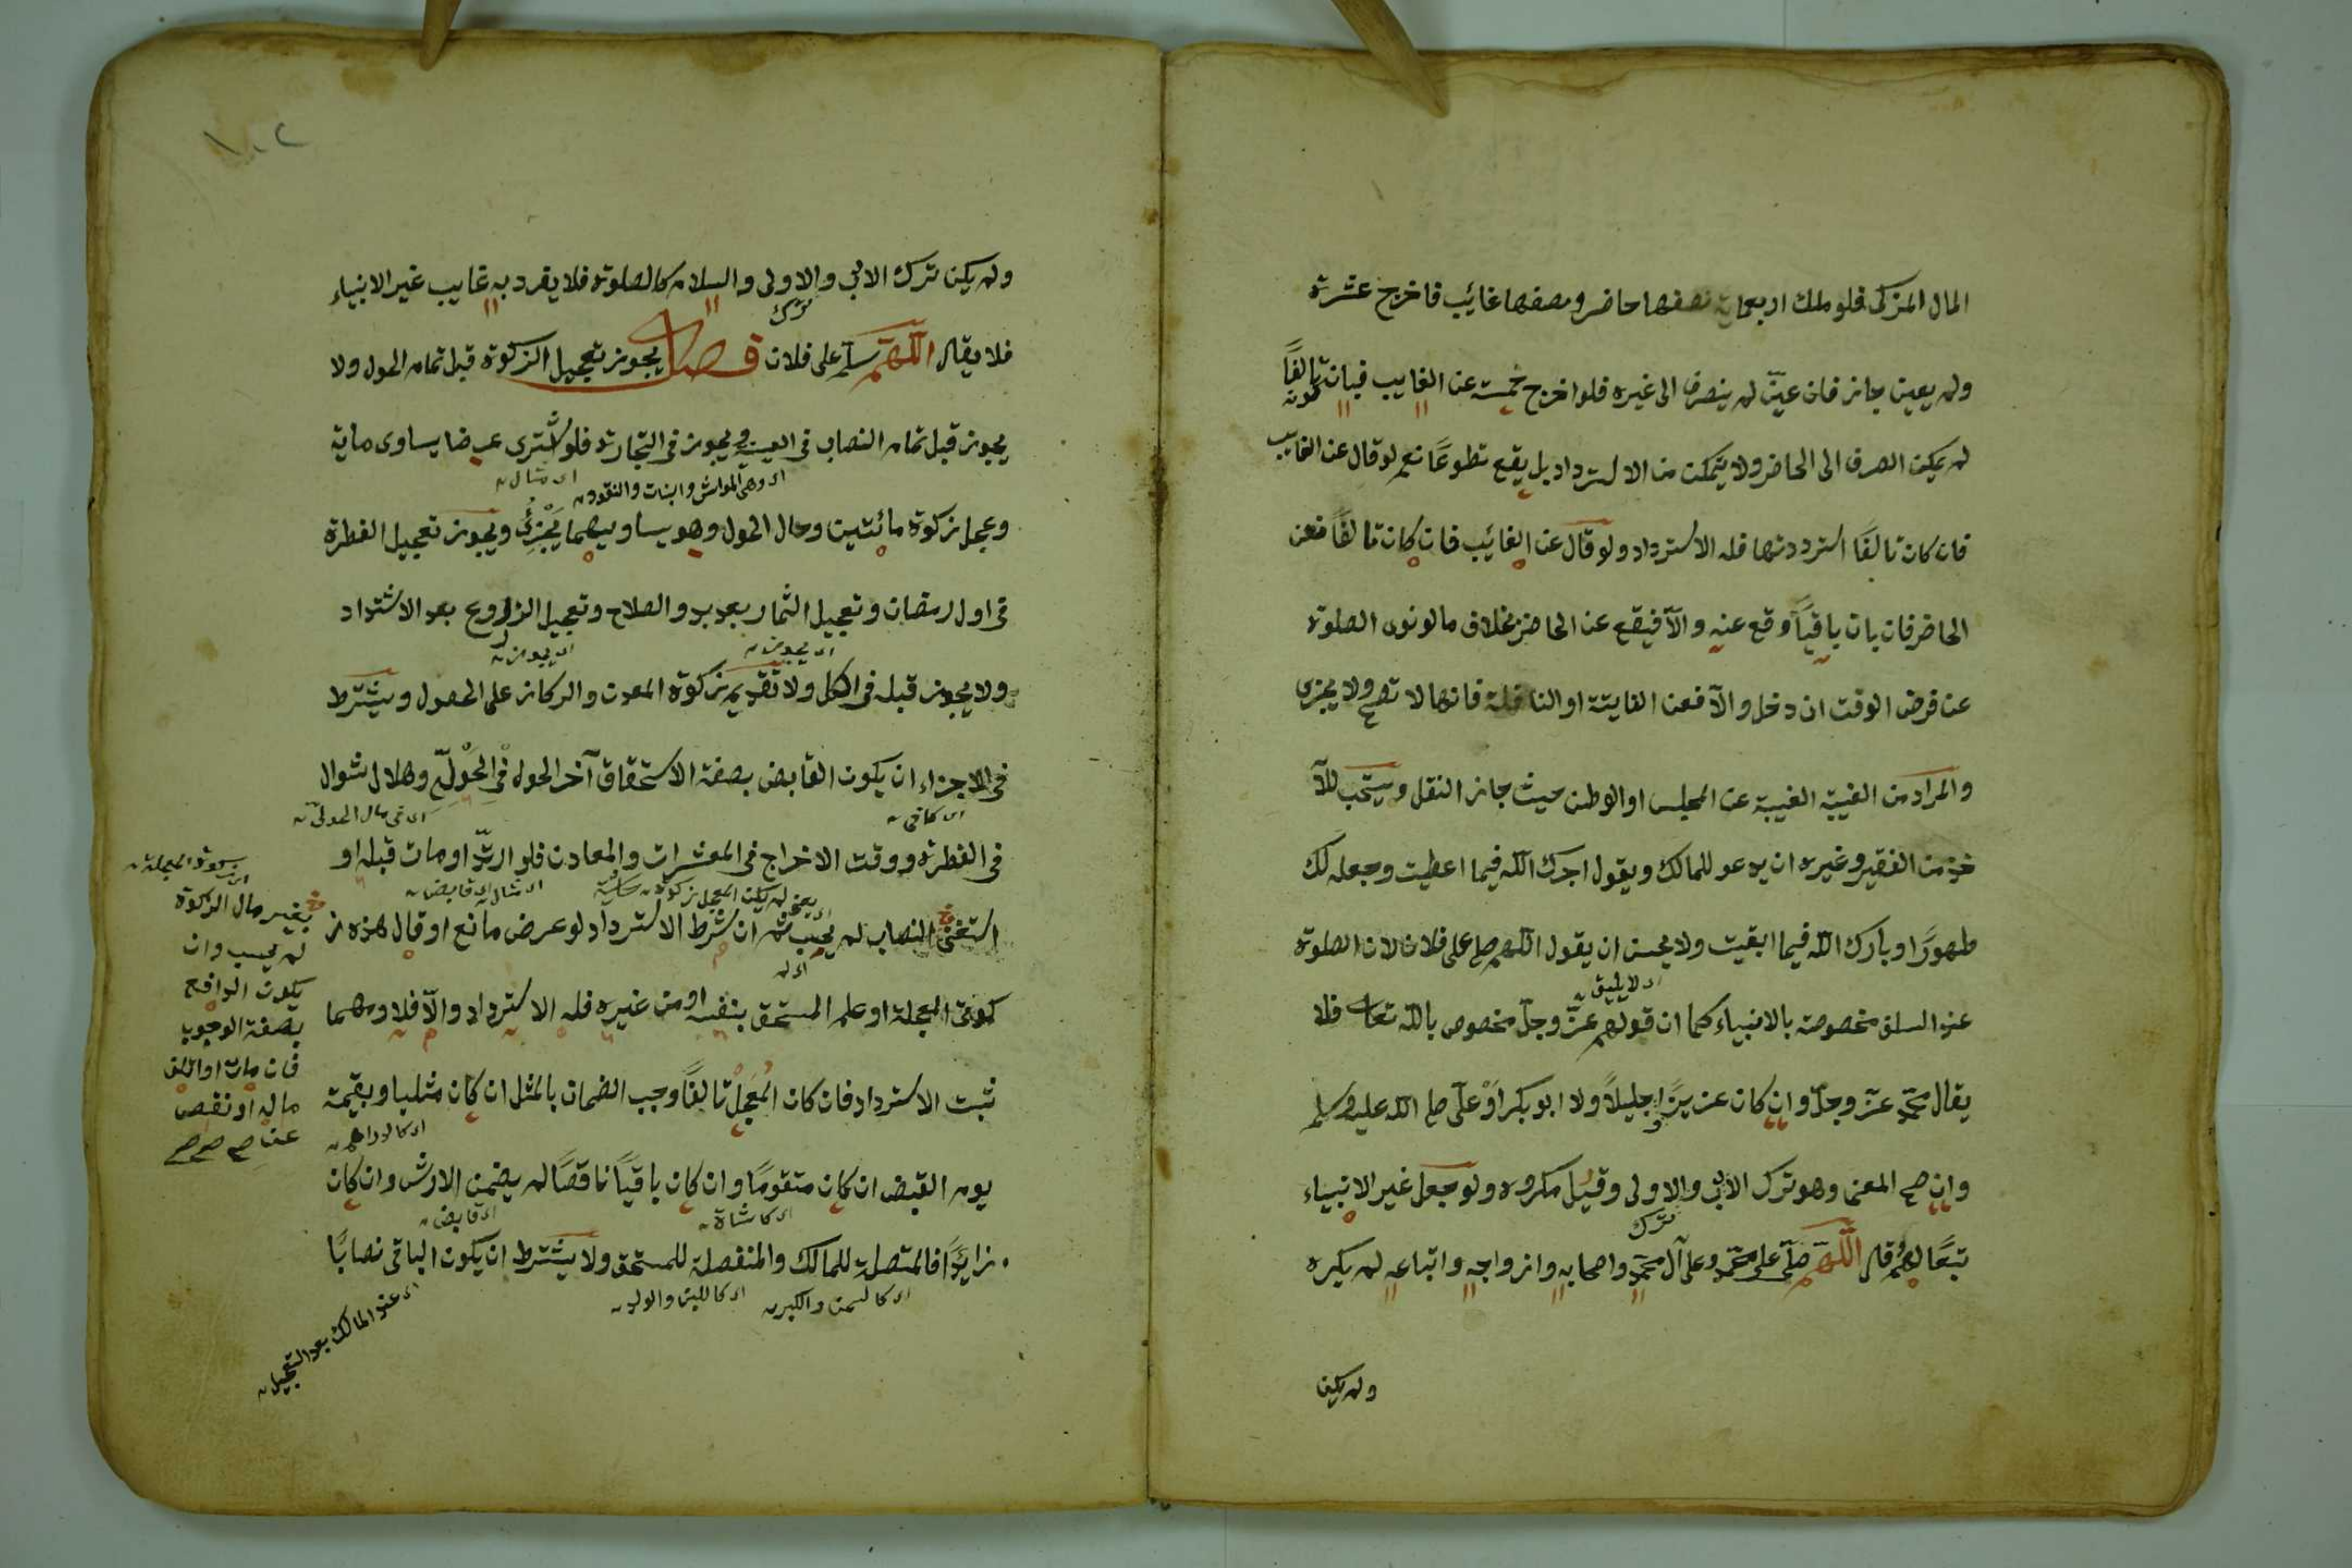 المال المزكى فلو ملك اربعماية نصفها حاضر ونصفها غائب فاخرج عشرة
ولم يعين جاز فان عيّن لم ينصرف الى غيره فلو اخرج خمسة عن الغايب فبان تالفًا
لم يمكن الصرف الى الحاضر ولا يتمكن من الاسترداد بل يقع تطوعًا نعم لو قال عن الغايب
فان كان تالفًا استرددتها فله الاسترداد ولو قال عن الغائب فان كان تالفًا فعن
الحاضر فان بان باقيًا وقع عنه والّا فيقع عن الحاضر بخلاف ما لو نوى الصلوة
عن فرض الوقت ان دخل والّا فعن الفايتة او النافلة فانها لا تصح ولا يجزى
والمراد من الغيبة الغيبة عن المجلس او الوطن حيث جاز النقل ويستحب للآ
خذ من الفقير وغيره ان يدعو للمالك ويقول اجرك الله فيما اعطيت وجعله لك
طهورًا وبارك الله فيما ابقيت ولا يحسن ان يقول اللهم صل على فلان لان الصلوة
اى لا يليق
عند السلف مخصوصة بالانبياء كما ان قولهم عزّ وجلّ مخصوص بالله تعالى فلا
يقال محمّد عزّ وجلّ وان كان عزيزًا وجليلًا ولا ابو بكر او علّى صلى الله عليه وسلم
وان صح المعنى وهو ترك الادب والاولى وقيل مكروه ولو جعل غير الانبياء
ترك
تبعًا لهم قال اللّهمّ صلّى على محمّد وعلى آل محمّد واصحابه وازواجه واتباعه لم يكره
ولم يكن
ولم يكن ترك الادب والاولى والسلام كالصلوة فلا يفرد به غايب غير الانبياء
ترك
فلا يقال اللّهمّ سلّم على فلان فصل يجوز تعجيل الزكوة قبل تمام الحول ولا
يجوز قبل تمام النصاب فى العينية ويجوز فى التجارة فلو اشترى عرضا يساوى ماية
اى وهى المواشى والنبات والنقود
اى مثال
وعجل زكوة مائتين وحال الحول وهو يساويهما يجزئ ويجوز تعجيل الفطرة
فى اول رمضان وتعجيل الثمار بعد بدو الصلاح وتعجيل الزروع بعد الاشتداد
اى يجوز
اى يجوز
ولا يجوز قبله فى الكل ولا تقديم زكوة المعدن والركاز على الحصول ويشترط
فى الاجزاء ان يكون القابض بصفة الاستحقاق آخر الحول فى الحولّى وهلال شوال
اى كافى
اى فى مال الحولىّ
فى الفطرة ووقت الاخراج فى المعشرات والمعادن فلو ارتدّ او مات قبله او
اى مثال اى قابض
استغنى النصاب لم يحسب ثم ان شرط الاسترداد لو عرض مانع او قال هذه ز
كوتى المعجلة او علم المستحق بنفسه او من غيره فله الاسترداد والّا فلا ومهما
ثبت الاسترداد فان كان المُعَجَّلْ تالفًا وجب الضمان بالمثل ان كان مثليا وبقيمة
اى كالدراهم
يوم القبض ان كان متقومًا وان كان باقيًا ناقصًا لم يضمن الارش وان كان
اى كاشاة
اى قابض
زايدًا فالمتصلة للمالك والمنفصلة للمستحق ولا يشترط ان يكون الباقى نصابًا
اى كالسمن والكبر
اى كاللبن والولد
اى عند المالك بعد التعجيل
بغير مال الزكوة
لم يحسب وان
يكون الدافع
بصفة الوجوب
فان مات او اتلف
ماله او نقص
عنه صح صح صح
١٠٢